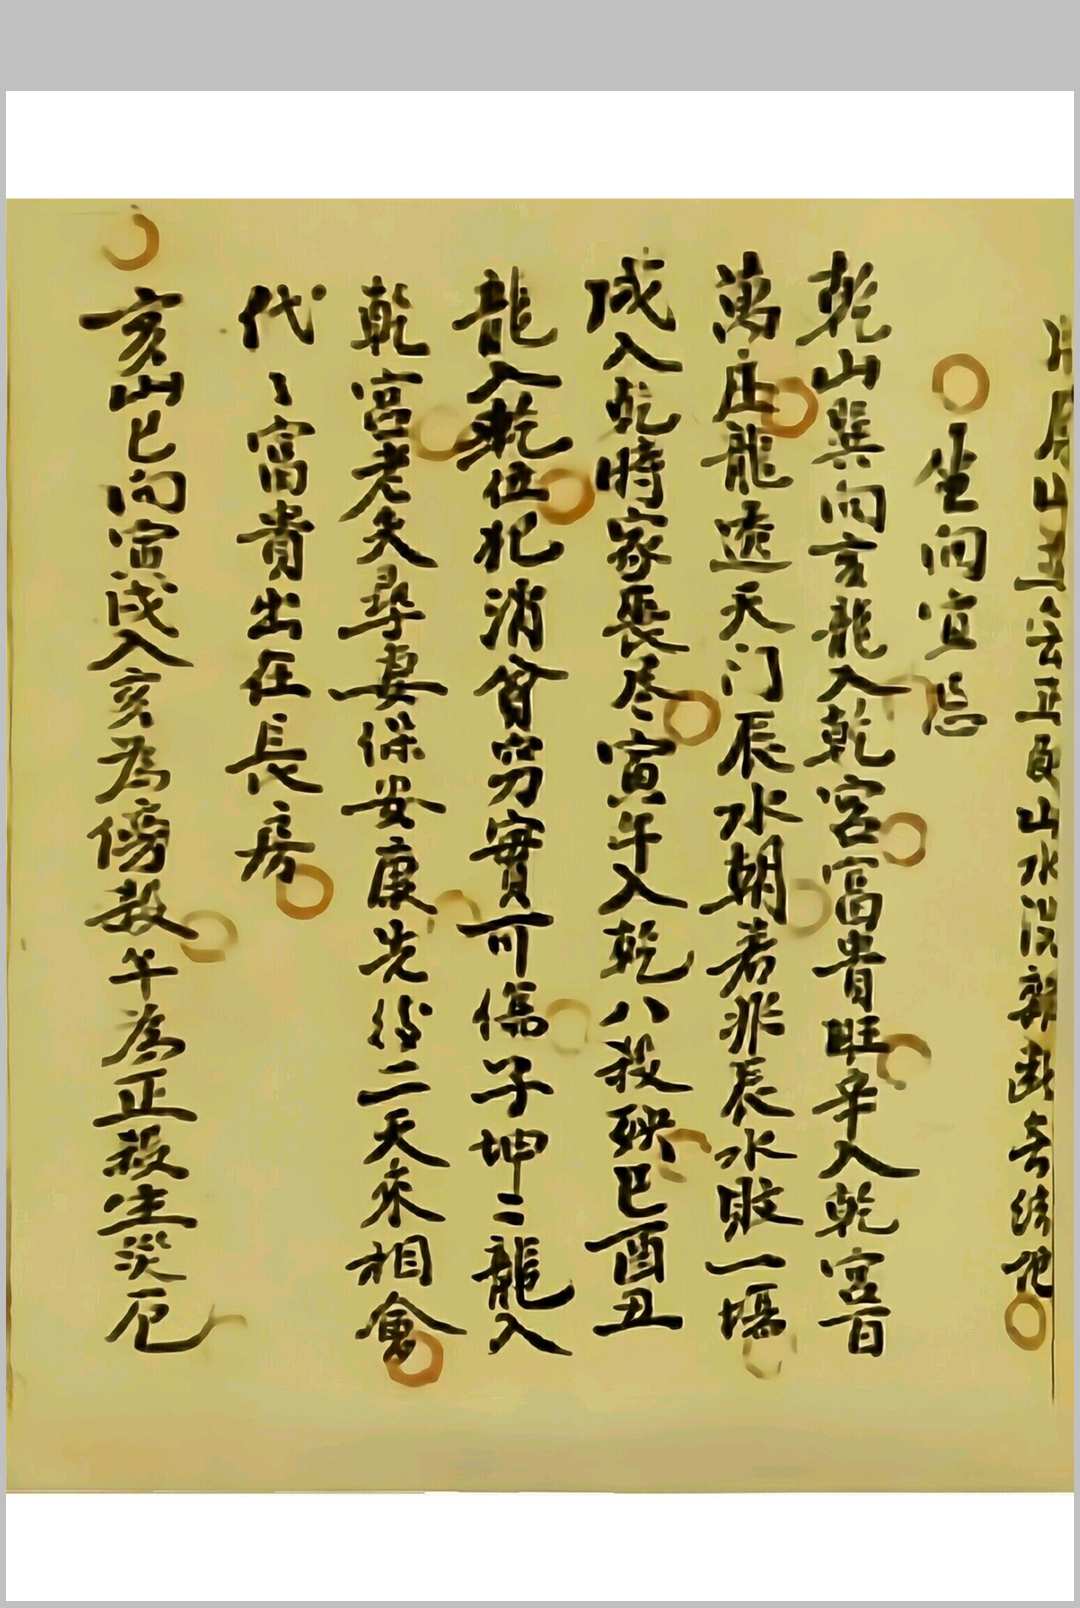 山正艮山水
坐向宜忌
乾山巽向亥龍入乾宮富貴旺辛入乾宮百
萬庄龍透天门辰水朝若非辰水敗一塲
戍入乾時家丧尽寅午入乾八殺殃巳酉丑
龍入乾位犯消貧窮實可傷子坤二龍入
乾宮老夫尋妻保安康先後二天来相會
代〻富貴出在長房
亥山巳向寅戍入亥為傍殺午為正殺生災厄